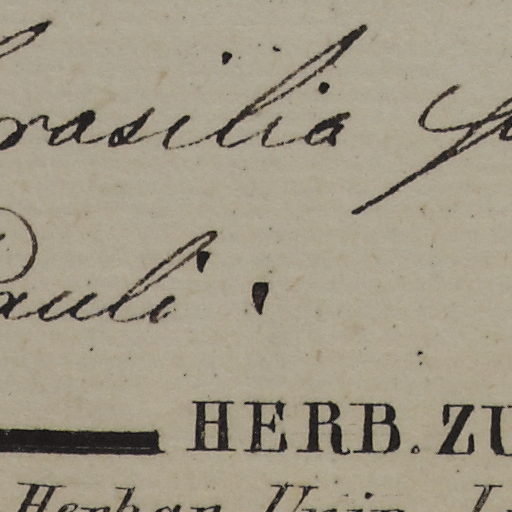 rasilia
Pauli.
HERB. ZU
Herbar. Univ.